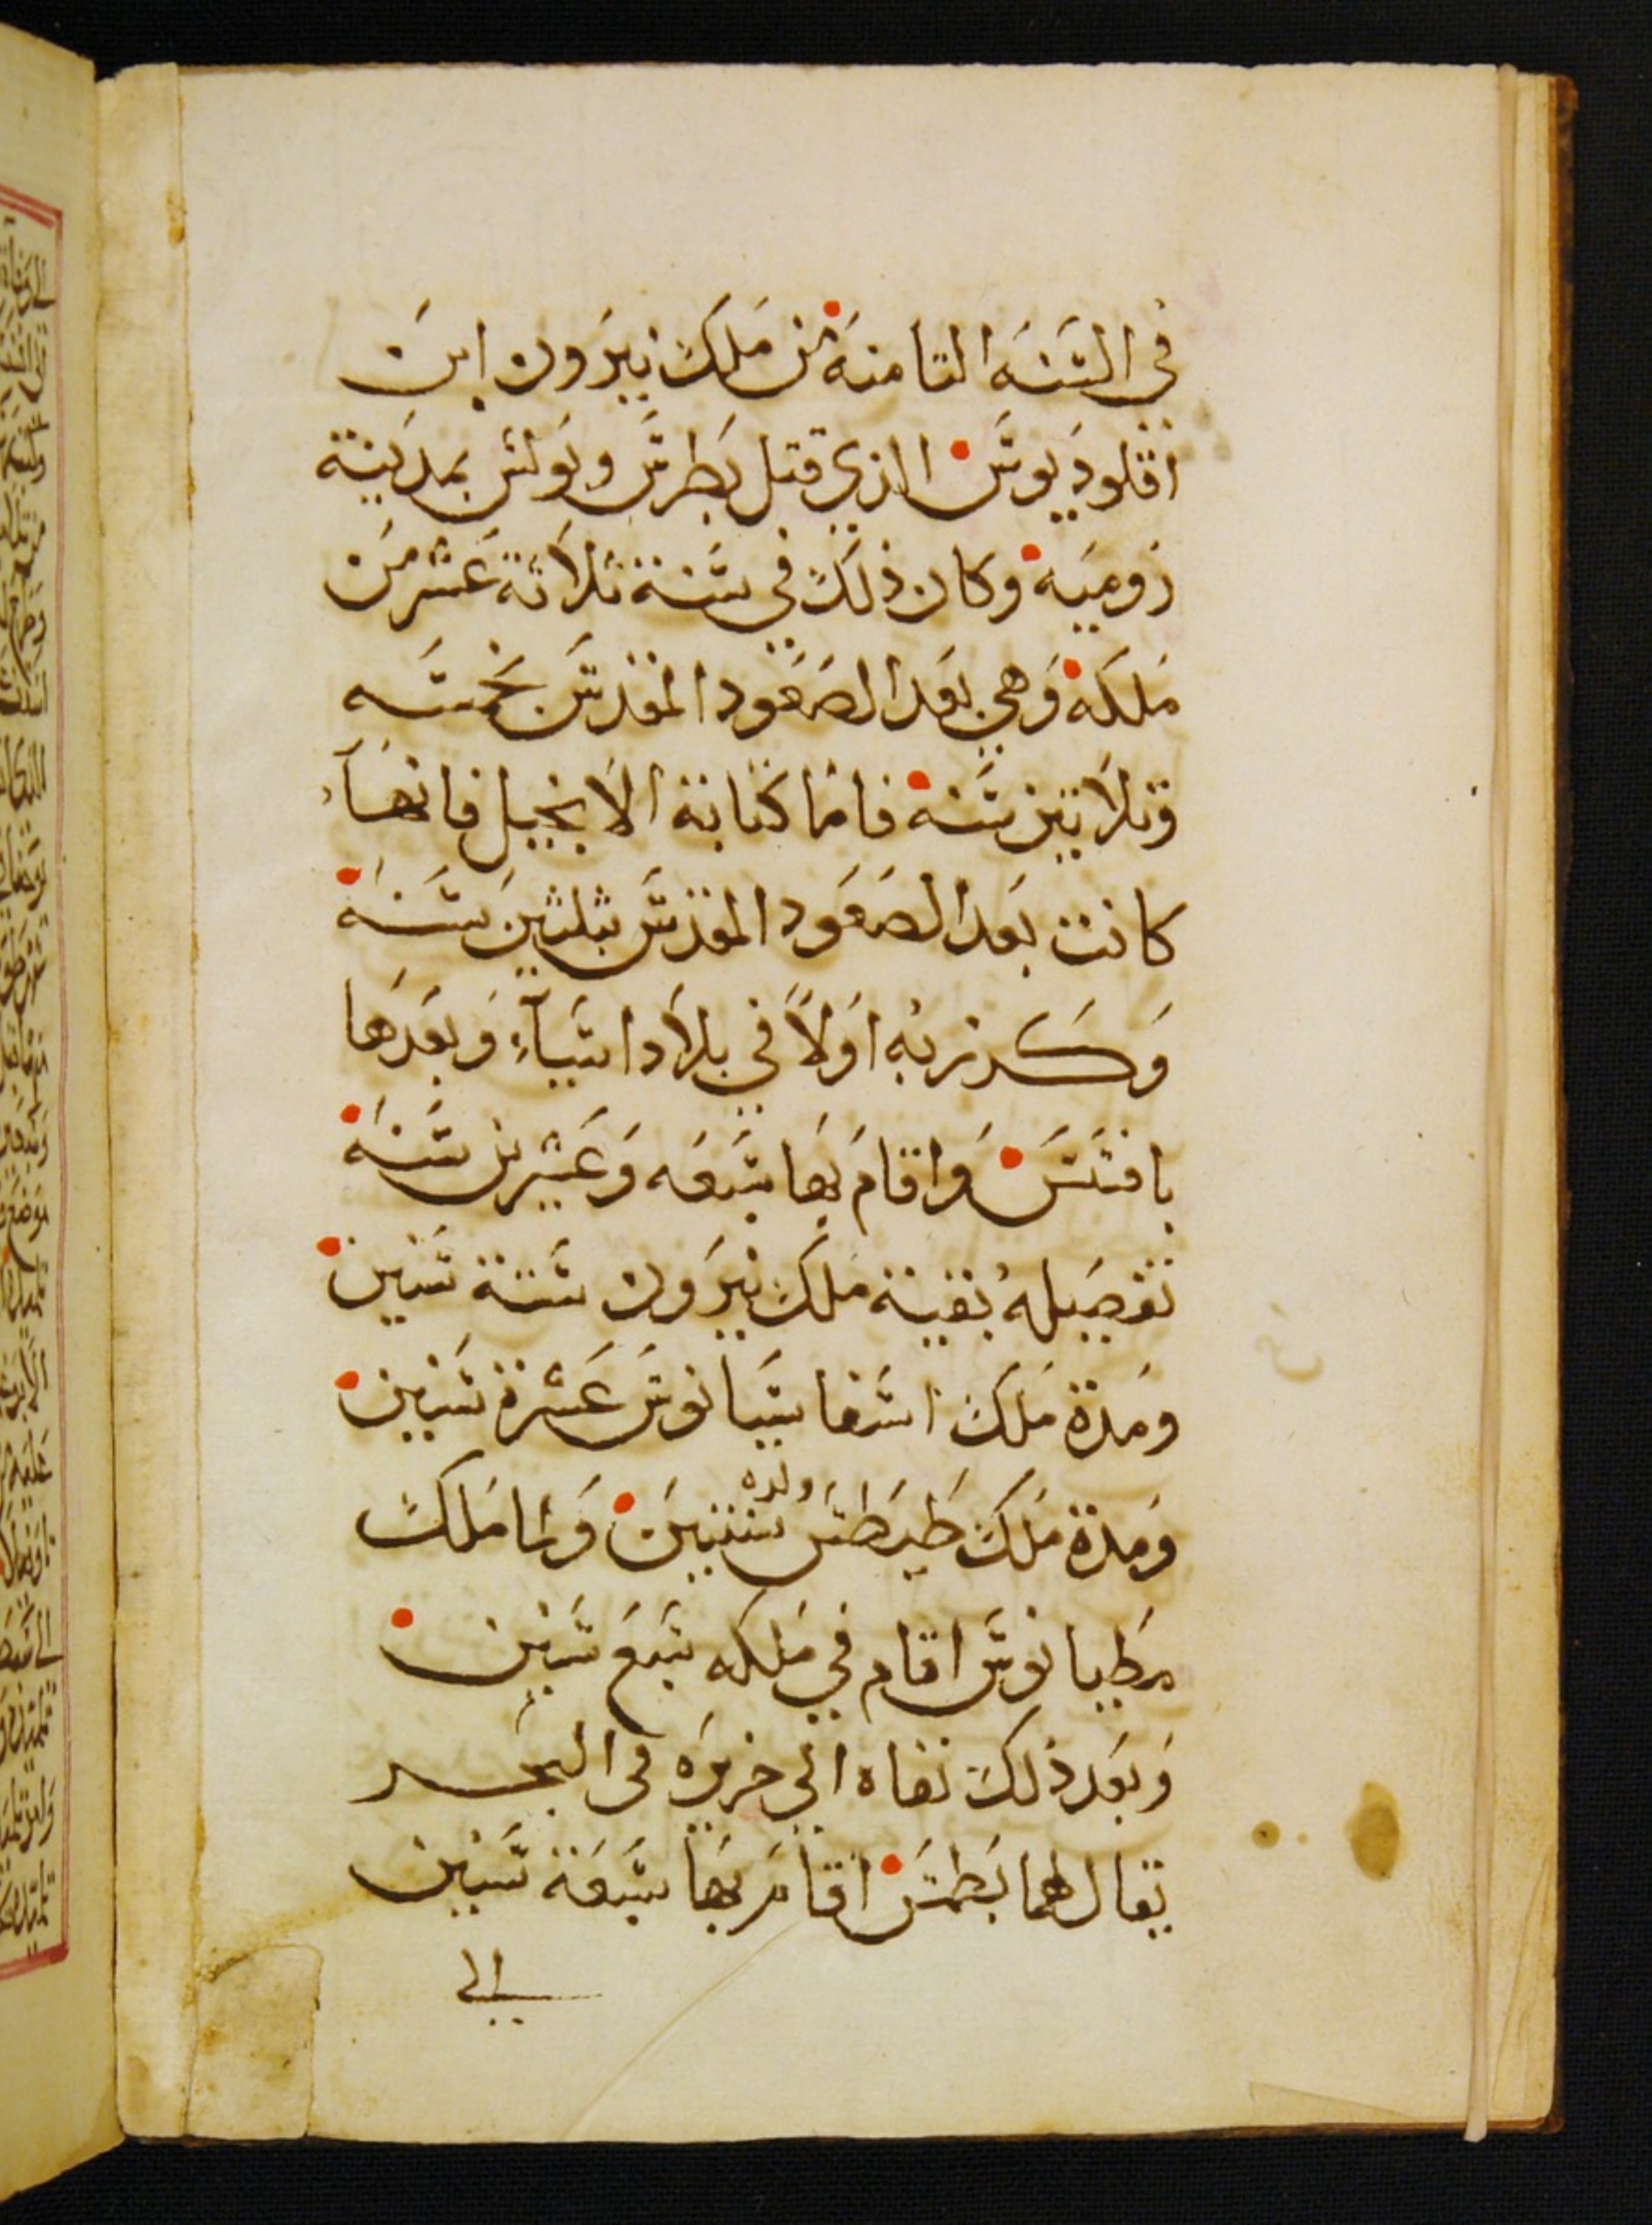 في السَنَه التامنة من مَلكَ نيرَون ابنَ
اقلوديوسَ االذي قتل بَطرسَ وبَولسَ بمدَينة
رَوميَه وكان ذلكَ في سَنة ثلاثة عَشر مَن
مَلكَه وَهي بَعد الصَعَود المقدسَ بخَمسَه
وَتلاتين سَنه فامَا كتابة الانجيل فانهَا
كانت بَعد الصَعَود المقدسَ بثلثين سَنَه
وَكَرز بُه اوَلاً في بلاد اسَيآءِ وَبعَدَها
بافسَسَ وَاقامَ بَها سَبَعَه وَعَشرين سَنَه
تفصَيله بُقية مَلكَ نيرَون سَتة سَنين
ومَدة مَلكَ اسَفاسَيانوسَ عَشرة سَنين
وَمدة مَلكَ طيَطسَ ولده سنتينَ وَلما مَلكَ
مرطيانوسَ اقام في مَلكه سَبعَ سَنين
وَبعَد ذلكَ نفاه الي جزيرَه فى البحَر
يقال لهما بَطمسَ اقامَ بَها سَبَعَة سَنين
الي